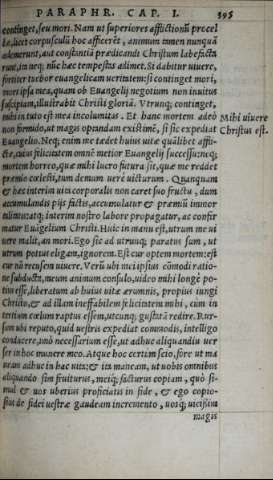 PARAPHR. CAP. I. 395
continget, seu mori. Nam ut superiores afflictionũ procel
læ, licet corpusculũ hoc affecerĩt, animum tamen nunquã
adẽmerunt, aut constantiã prædicandi Christum labefactã
runt, ita neq; nũc hæc tempestas adimet. Si dabitur uiuere,
fortiter turbor euangelicam ueritatem: si continget mori,
mors ipsa mea, quam ob Euangelij negotium non inuitus
suscipiam, illustrabit Christi gloriã. Vtrunq; continget,
mihi in tuto est mea incolumitas. Et hanc mortem adeò
non formido, ut magis optandam existimẽ, si sic expediat
Euangelio. Neq; enim me tædet huius uitæ quãlibet affli-
ctæ, cuius feliciorem omnẽ metior Euangelij successu: neq;
mortem horreo, quæ mihi lucro futura sit, quæ me reddet
præmio cœlesti, tum demum uerè uicturum. Quanquam
& hæc interim uita corporalis non caret suo fructu, dum
accumulandis pijs factis, accumulatur & præmiũ immor
talitatis: atq; interim nostro labore propagatur, ac confir
matur Euãgelium Christi. Huic in manu est, utrum me ui
uere malit, an mori. Ego sic ad utrunq; paratus sum, ut
utrum potius eligam, ignorem. Est cur optem mortem: est
cur nõ recusem uiuere. Verũ ubi mei ipsius cõmodi ratio-
ne subducta, meum animum consulo, uideo mihi longè po-
tius esse, liberatum ab huius uitæ ærumnis, propius iungi
Christo, & ad illam ineffabilem felicitatem mihi, cùm in
tertium cœlum raptus essem, utcunq; gustatã redire. Rur-
sum ubi reputo, quid uestris expediat commodis, intelligo
conducere, imò necessarium esse, ut adhuc aliquandiu uer
ser in hoc munere meo. Atque hoc certum scio, fore ut ma
neam adhuc in hac uita: & ita maneam, ut uobis omnibus
aliquando sim fruiturus, meiq́; facturus copiam, quò si-
mul & uos uberius proficiatis in fide, & ego copio-
sius de fidei uestræ gaudeam incremento, uosq; uicissim
magis
Mihi uiuere
Christus est.